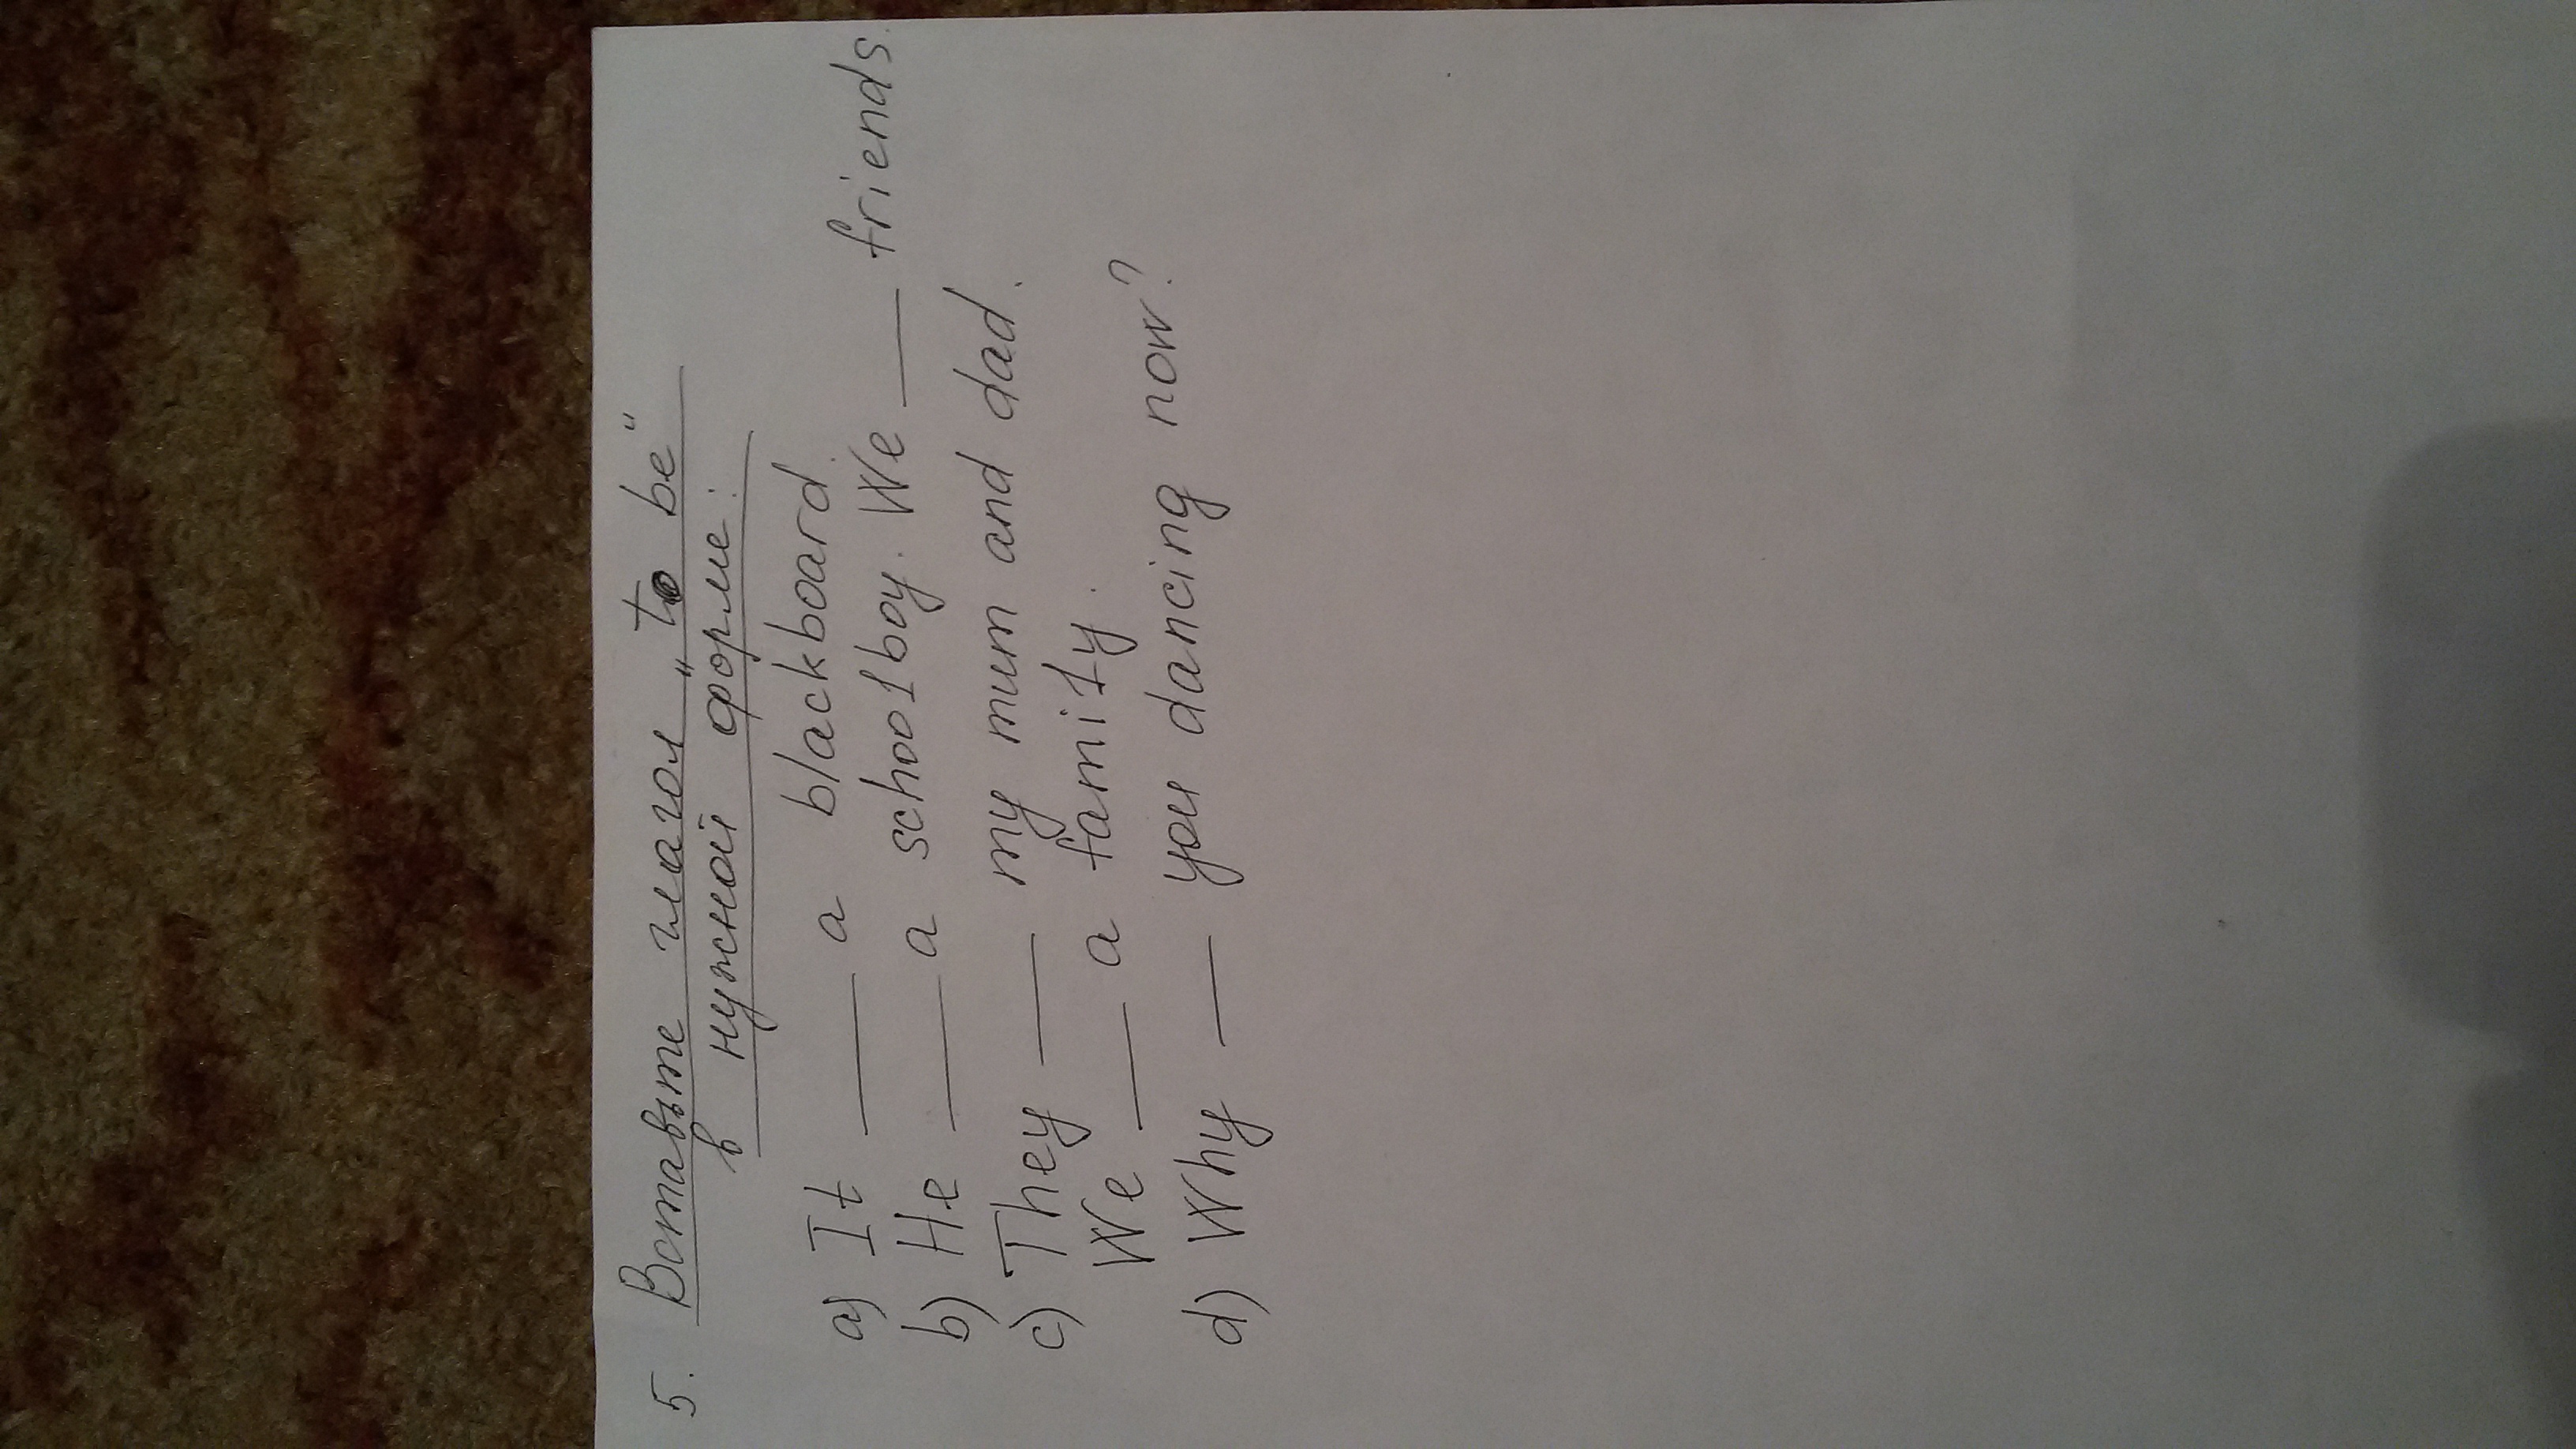 5. Вставьте глагол „to be“
в нужной форме:
a) It ___ a blackboard.
b) He ___ a schoolboy. We ___ friends.
c) They ___ my mum and dad.
We ___ a family.
d) Why ___ you dancing now?